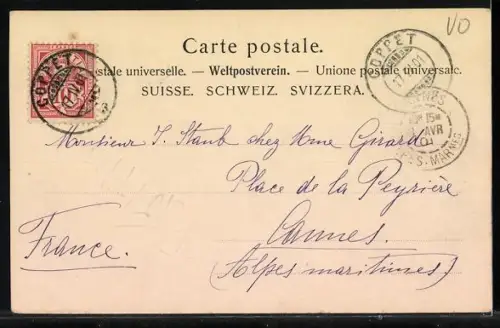 VO
Carte postale.
postale universelle. — Weltpostverein. — Unione postale universale.
SUISSE. SCHWEIZ. SVIZZERA.
COPPET
COPPET
CANNES
15
AVR
ALPES-MARMES
Monsieur J. Staub chez Mme Girard
Place de la Peyrière
Cannes.
(Alpes maritimes)
France.